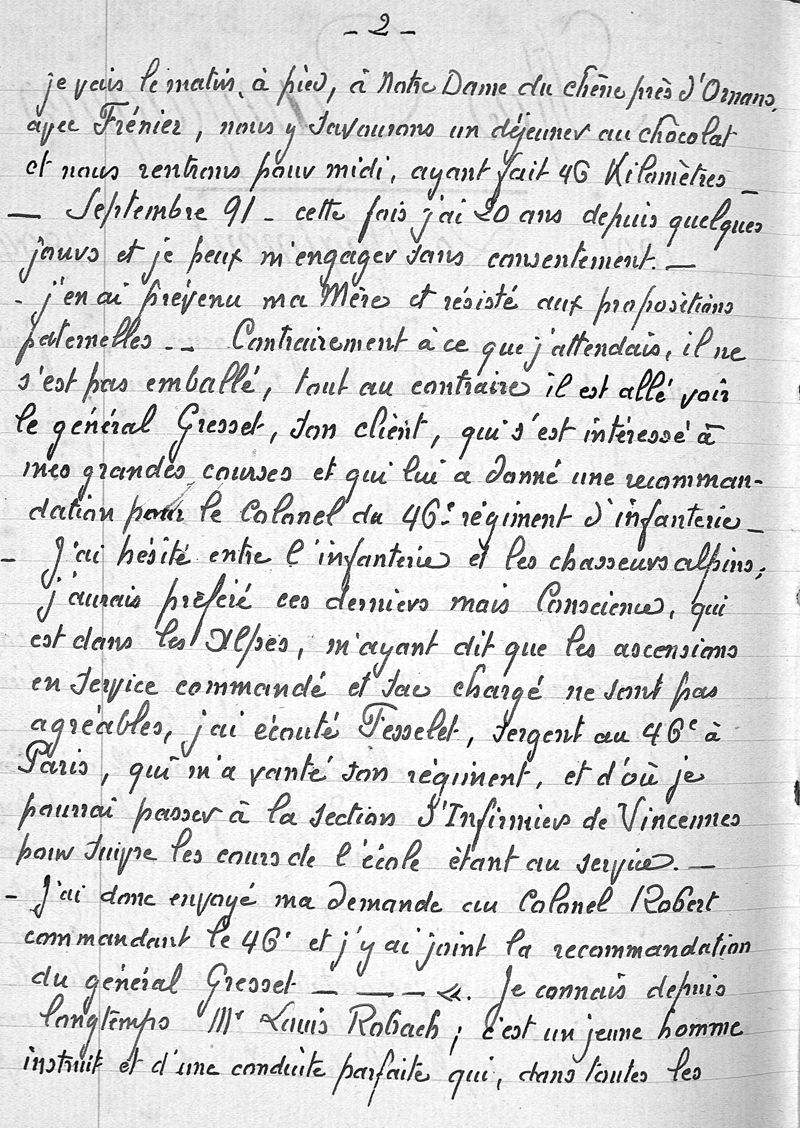 - 2 -
je vais le matin, à pied, à Notre Dame du chêne près d'Ornans,
avec Frénier, nous y savourons un déjeuner au chocolat
et nous rentrons pour midi, ayant fait 46 Kilomètres _
— Septembre 91 - cette fois j'ai 20 ans depuis quelques
jours et je peux m'engager sans consentement. —
- j'en ai prévenu ma Mère et résisté aux propositions
paternelles -- Contrairement à ce que j'attendais, il ne
s'est pas emballé, tout au contraire il est allé voir
le général Gresset, son client, qui s'est intéressé à
mes grandes courses et qui lui a donné une recomman-
dation pour le Colonel du 46e régiment d'infanterie _
- J'ai hésité entre l'infanterie et les chasseurs alpins;
j'aurais préféré ces derniers mais Conscience, qui
est dans les Alpes, m'ayant dit que les ascensions
en service commandé et sac chargé ne sont pas
agréables, j'ai écouté Fesselet, sergent au 46e à
Paris, qui m'a vanté son régiment, et d'où je
pourrai passer à la section d'Infirmiers de Vincennes
pour suivre les cours de l'école étant au service. —
- J'ai donc envoyé ma demande au Colonel Robert
commandant le 46e et j'y ai joint la recommandation
du général Gresset — — — «. Je connais depuis
longtemps Mr Louis Robach; c'est un jeune homme
instruit et d'une conduite parfaite qui, dans toutes les